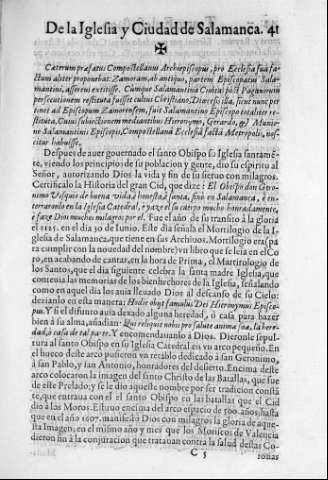 De la Iglesia y Ciudad de Salamanca. 41
Cæterum præfatus Compostellanus Archiepiscopus, pro Ecclesia sua fa-
ctum aliter proponebat. Zamoram, ab antiquo, partem Episcopatus Sala-
mantini, asserens extitisse. Cumque Salamantina Civitas post Paganorum
persecutionem restituta fuisset cultui Christiano, Diœcesis illa, sicut nunc per
Episcopum Zamorensem, fuit Salamantino Episcopo totaliter re-
stituta. Cuius subiectionem mediantibus Hieronymo, Gerardo, & Munio-
ne Salamantinis Episcopis, Compostellana Ecclesia facta Metropolis, nos-
citur habuisse.
Despues de auer gouernado el santo Obispo su Iglesia santamē-
te, viendo los principios de su poblacion y gente, dio su espiritu al
Señor, autorizando Dios la vida y fin de su sieruo con milagros.
Certificalo la Historia del gran Cid, que dize: El Obispo don Gero-
nimo Visquio de buena vida, è honesta, è santa, finò en Salamanca, è en-
terraronlo en la Iglesia Catedral, e yaze su cuerpo mucho honradamente,
e faze Dios muchos milagros por el. Fue el año de su transito à la gloria
el 1125. en el dia 30 de Iunio. Este dia señala el Mortilogio de la I-
glesia de Salamanca, que tiene en sus Archiuos. Mortilogio era (pa
ra cumplir con la nouedad del nombre) vn libro que se leia en el Co
ro, en acabando de cantar, en la hora de Prima, el Martirologio de
los Santos, que el dia siguiente celebra la santa madre Iglesia, que
contenia las memorias de los bienhechores de la Iglesia, señalando
como en aquel dia los auia lleuado Dios al descanso de su Cielo:
deziando en esta manera: Hodie obijt famulus Dei Hieronymus Episco-
pus. Y si el difunto auia dexado alguna heredad, ò casa para hazer
bien à su alma, añadian: Qui reliquit nobis pro salute animæ suæ, la here-
dad, ò casa de tal parte. Y encomendauanlo à Dios. Dieronle sepul-
tura al santo Obispo en su Iglesia Catedral en vn arco pequeño. En
el hueco deste arco pusieron vn retablo dedicado à san Geronimo,
à san Pablo, y san Antonio, honradores del desierto. Encima deste
arco colocaron la imagen del santo Christo de las Batallas, que fue
de este Prelado; y se le dio aqueste nombre por ser tradicion constā
te, que entraua con el el santo Obispo en las batallas que el Cid
dio à los Moros. Estuuo encima del arco espacio de 500. años, hasta
que en el año 1607. manifestò Dios con milagros la gloria de aques-
ta Imagen; en el mismo año y mes que los Moriscos de Valencia
dieron fin à la conjuracion que tratauan contra la salud destas Co-
C 5 ronas